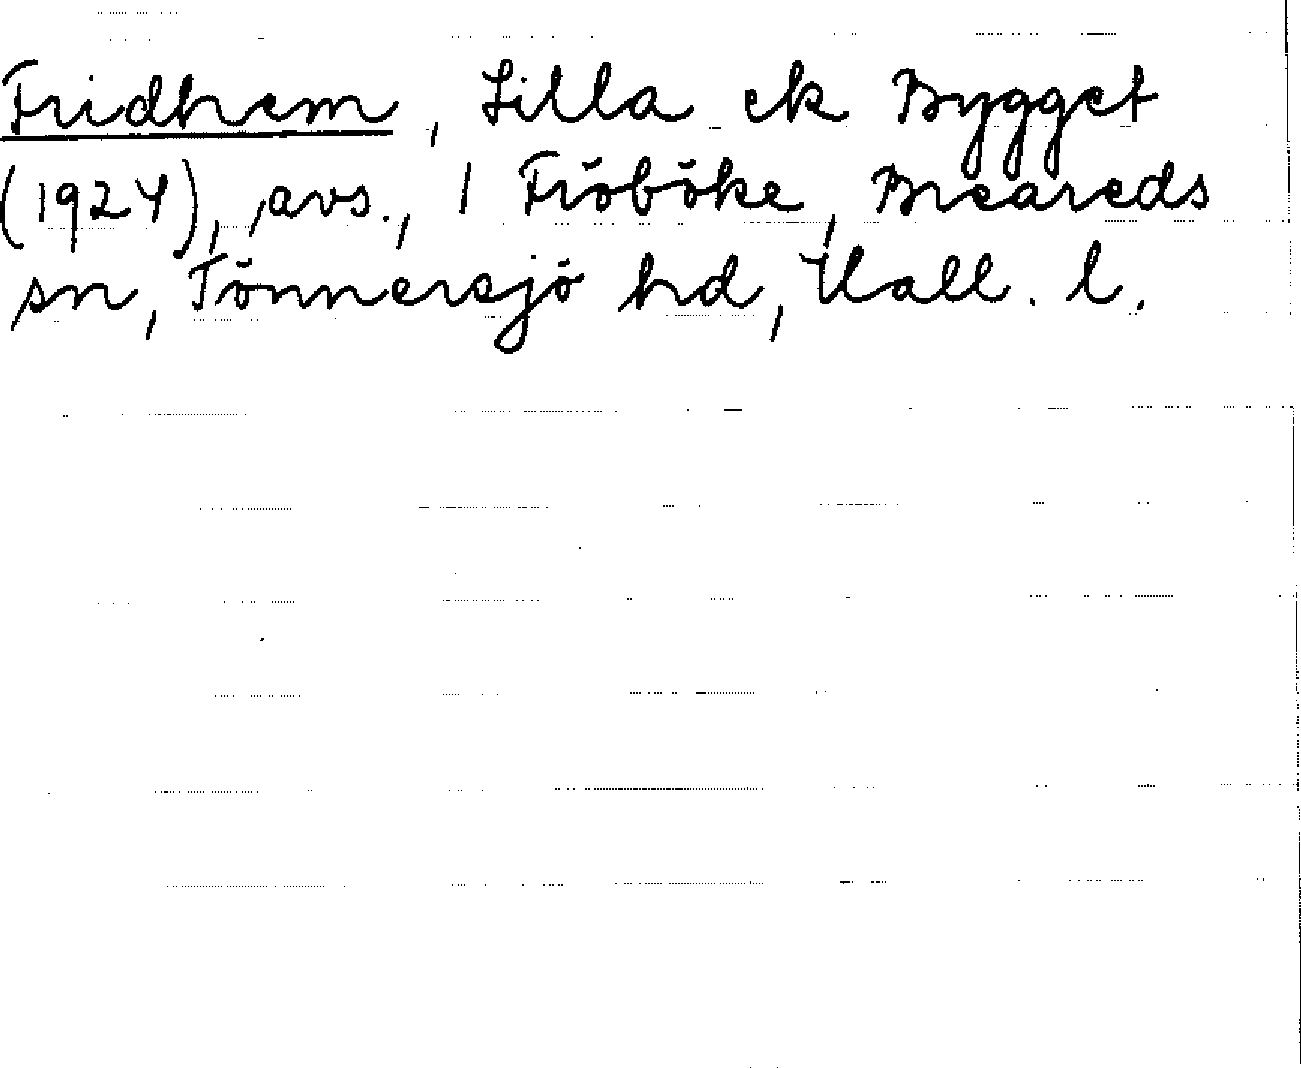 Fridhem, Lilla ek Bygget
(1924), avs., 1 Fröböke, Breareds
sn, Tönnersjö hd, Hall. l.